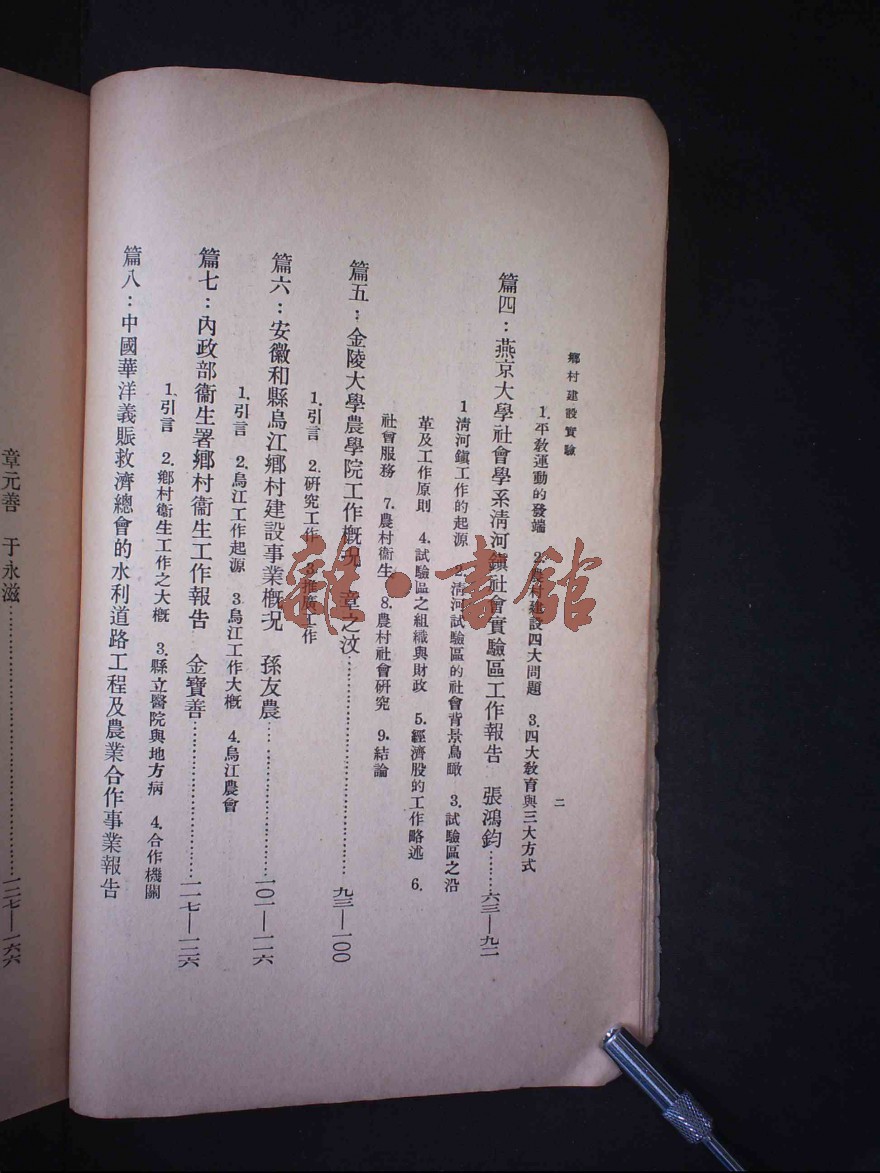 鄉村建設實驗
二
1.平敎運動的發端 2.農村建設四大問題 3.四大敎育與三大方式
篇四：燕京大學社會學系淸河鎭社會實驗區工作報告 張鴻鈞………六三—九二
1 淸河鎭工作的起源 2.淸河試驗區的社會背景鳥瞰 3.試驗區之沿
革及工作原則 4.試驗區之組織與財政 5.經濟股的工作略述 6.
社會服務 7.農村衞生 8.農村社會研究 9.結論
篇五：金陵大學農學院工作槪況 章之汶………九三—一〇〇
1.引言 2.研究工作 3.推廣工作
篇六：安徽和縣烏江鄉村建設事業槪況 孫友農………一〇一—一一六
1.引言 2.烏江工作起源 3.烏江工作大槪 4.烏江農會
篇七：內政部衞生署鄉村衞生工作報告 金寶善………一一七—一二六
1.引言 2.鄉村衞生工作之大槪 3.縣立醫院與地方病 4.合作機關
篇八：中國華洋義賑救濟總會的水利道路工程及農業合作事業報告
章元善 于永滋………一二七—一六六
雜·書館